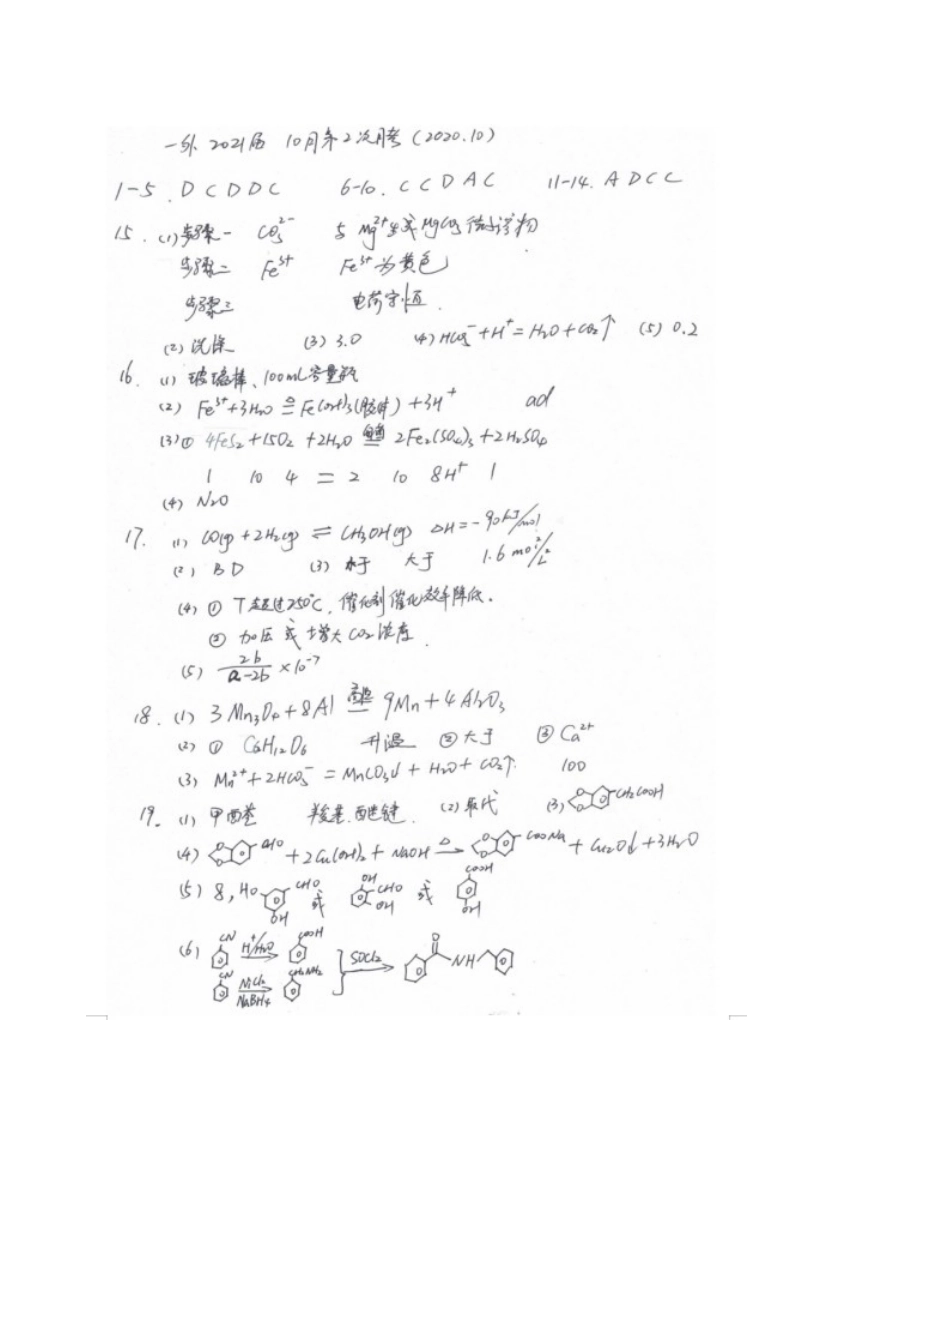 一外 2021届 10月第2次月考 (2020.10)
1-5. D C D D C 6-10. C C D A C 11-14. A D C C
15. (1) 步骤一 CO₃²⁻ 与Mg²⁺生成MgCO₃微溶物
步骤二 Fe³⁺ Fe³⁺为黄色
步骤三 电荷守恒.
(2) 洗涤 (3) 3.0 (4) HCO₃⁻+H⁺=H₂O+CO₂↑ (5) 0.2
16. (1) 玻璃棒、100mL容量瓶
(2) Fe³⁺+3H₂O ⇌ Fe(OH)₃(胶体)+3H⁺ ad
(3)① 4FeS₂+15O₂+2H₂O = 2Fe₂(SO₄)₃+2H₂SO₄
1 10 4 = 2 10 8H⁺ 1
(4) N₂O
17. (1) CO(g)+2H₂(g) ⇌ CH₃OH(g) ΔH=-90kJ/mol
(2) B D (3) 大于 1.6 mol²/L²
(4) ① T超过250℃, 催化剂催化效率降低.
② 加压或增大CO₂浓度.
(5) 2b/(a-2b) ×10⁻⁷
18. (1) 3Mn₃O₄+8Al 高温= 9Mn+4Al₂O₃
(2) ① C₆H₁₂O₆ 升温 ② 大于 ③ Ca²⁺
(3) Mn²⁺+2HCO₃⁻=MnCO₃↓+H₂O+CO₂↑ 100
19. (1) 羧基. 醚键. (2) 取代 (3) CH₂COOH
(4) CHO +2Cu(OH)₂+NaOH △→ COONa +Cu₂O↓+3H₂O
(5) 8, HO CHO OH 或 OH CHO OH 或 COOH OH
(6) CN H⁺/H₂O COOH
CN NiCl₂ NaBH₄ CH₂NH₂ SOCl₂ O NH